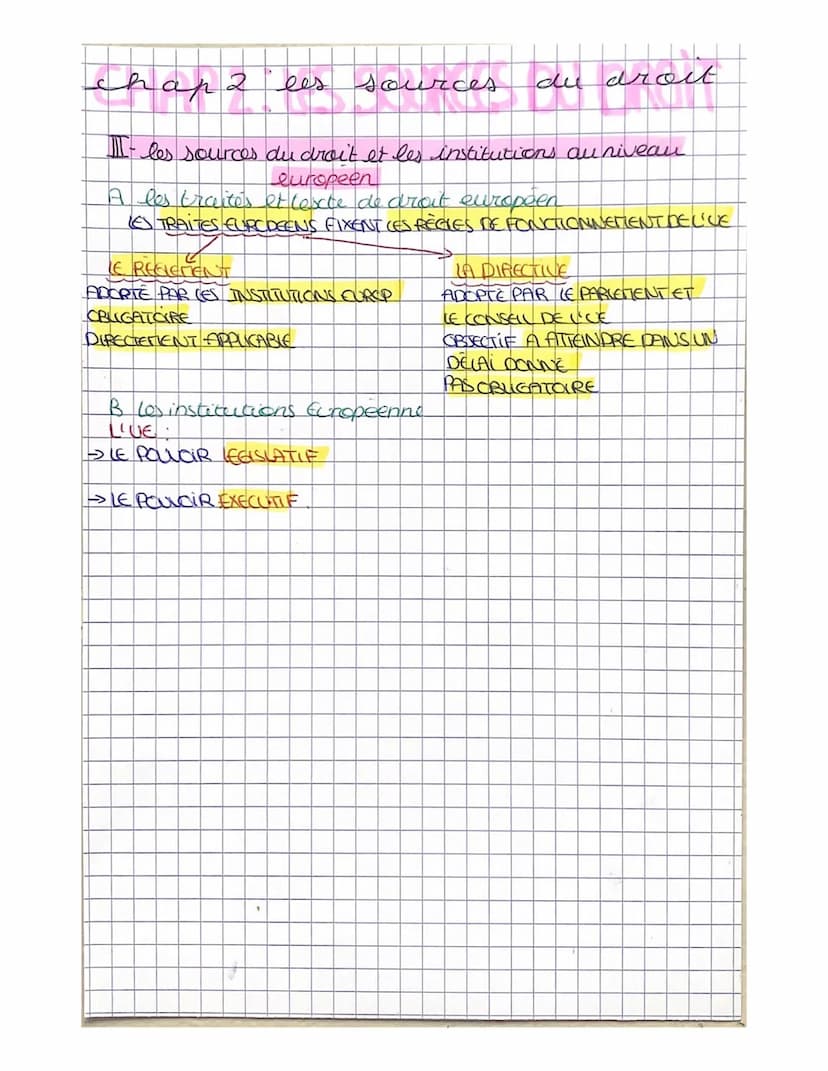 chap 2 : les sources du droit
II- les sources du droit et les institutions au niveau
européen
A les traités et texte de droit européen
LES TRAITES EUROPEENS FIXENT LES RÈGLES DE FONCTIONNEMENT DE L'UE
LE REGLEMENT
ADOPTÉ PAR LES INSTITUTIONS EUROP
OBLIGATOIRE
DIRECTEMENT APPLICABLE
LA DIRECTIVE
ADOPTÉ PAR LE PARLEMENT ET
LE CONSEIL DE L'UE
OBJECTIF A ATTEINDRE DANS UN
DÉLAI DONNÉ
PAS OBLIGATOIRE
B Les institutions Européenne
L'UE :
→ LE POUVOIR LEGISLATIF
→ LE POUVOIR EXECUTIF.